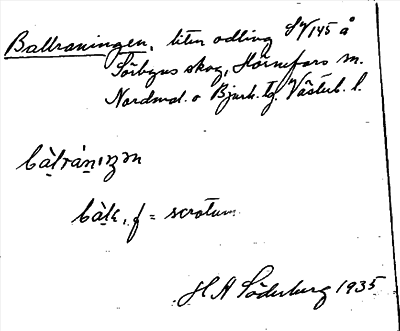 Ballraningen, liten odling S⁴/145 å
Sörbyns skog, Hörnefors sn.
Nordmal. o Bjurh. tg. Västerb. l.
bàlránɪŋən
bàlɛ, f = scrotum.
H A Söderberg 1935